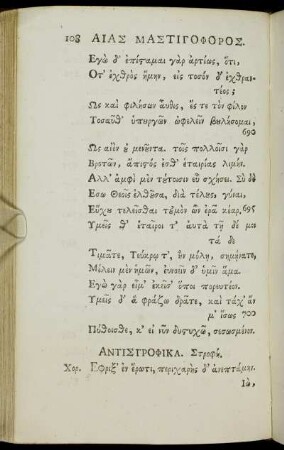 108 ΑΙΑΣ ΜΑΣΤΙΓΟΦΟΡΟΣ.
Εγὼ δ' ἐπίσταμαι γὰρ ἀρτίως, ὅτι,
Οτ' ἐχθρὸς ἥμην, εἰς τοσόν δ' ἐχθραν-
τέος;
Ως καὶ φιλήσων ἆυθις, ἔς τε τὸν φίλον
Τοσαῦθ' ὑπυργῶν ὠφελεῖν βυλήσομαι,
690
Ως αἰὲν ȣ̓ μενοῦντα. τοῖς πολλοῖσι γὰρ
Βροτῶν, ἄπιςός ἐσθ' ἑταιρίας λιμήν.
Αλλ' ἀμφὶ μὲν τύτοισιν εὖ σχήσει. Σὺ δὲ
Εσω Θεοῖς ἐλθῦσα, διὰ τέλυς, γύναι,
Εὔχυ τελεῖσθαι τȣ̓μὸν ὧν ἐρᾷ κέαρ, 695
Υμεῖς θ' ἑταῖροι τ' ἀυτὰ τῇ δέ μοι
τά δε
Τιμᾶτε, Τεύκρῳ τ', ἢν μόλῃ, σημήνατε,
Μέλειν μὲν ἡμῶν, ἐυνοεῖν δ' ὑμῖν ἅμα.
Εγὼ γὰρ εἶμ' ἐκεῖσ' ὅποι πορευτέον.
Υμεῖς δ' ἃ φράζω δρᾶτε, καὶ τάχ' ἄν
μ' ἴσως 700
Πύθοισθε, κ' εἰ νῦν δυςυχῶ, σεσωσμένον.
ΑΝΤΙΣΤΡΟΦΙΚΑ. Στροφή.
Χορ. Εφριξ' ἐν ἔρωτι, περιχαρὴς δ' ἀνεπτάμην.
Ιὼ,